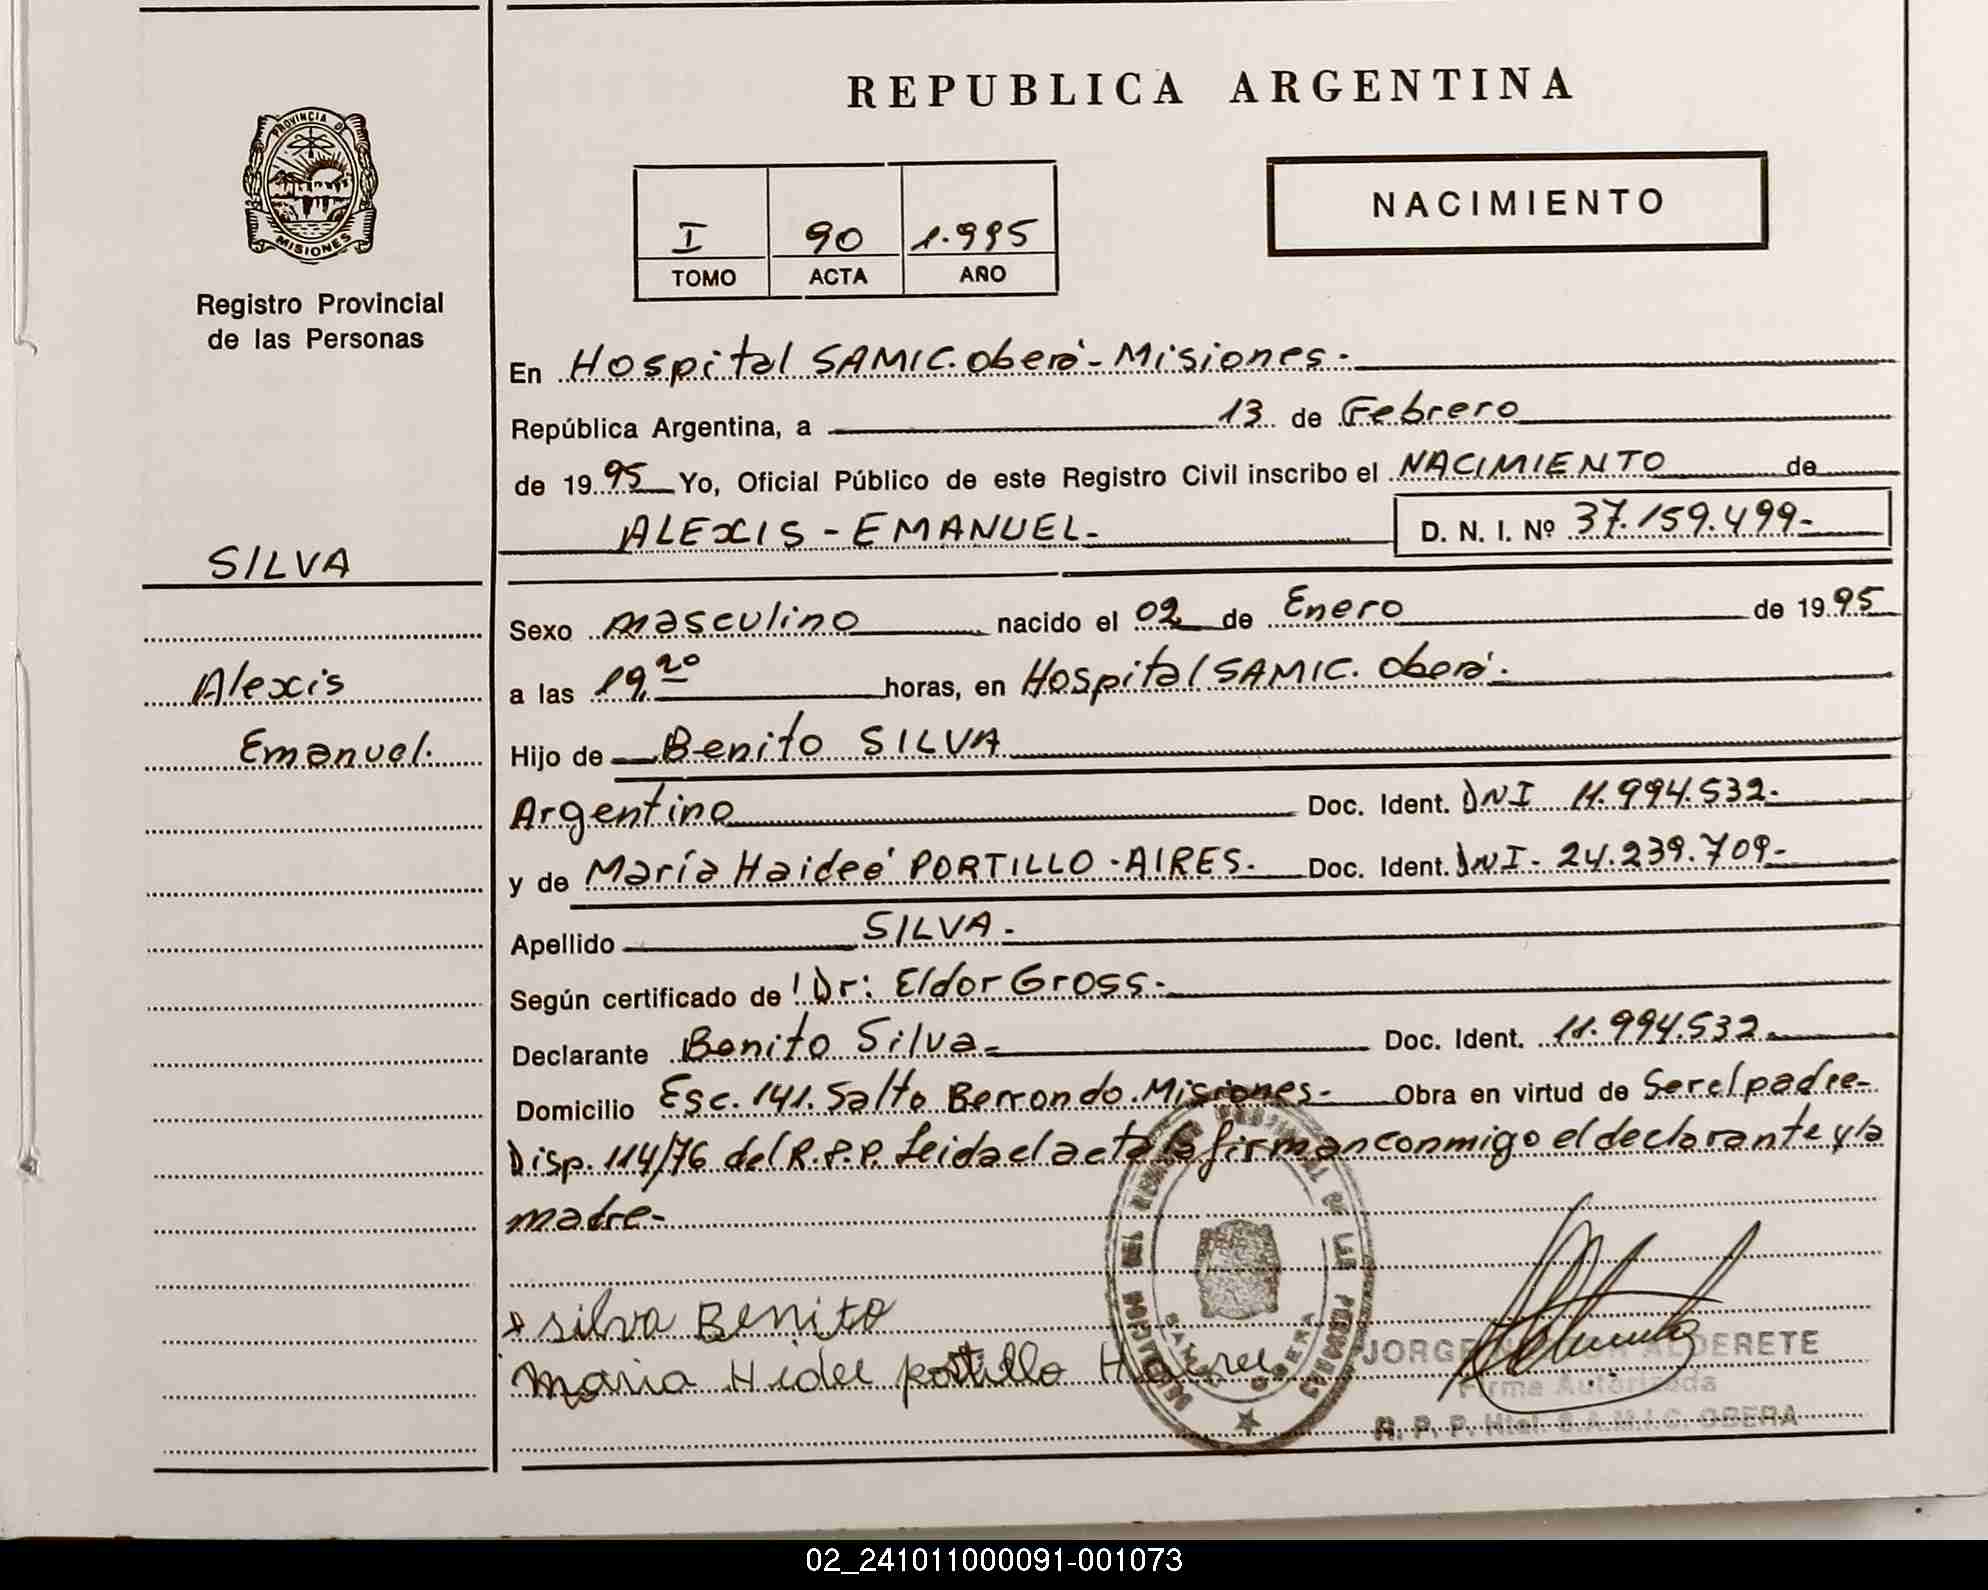 REPUBLICA ARGENTINA
PROVINCIA DE
MISIONES
Registro Provincial
de las Personas
NACIMIENTO
I 90 1.995
TOMO ACTA AÑO
En Hospital SAMIC. Oberá - Misiones.
República Argentina, a 13 de Febrero
de 1995 Yo, Oficial Público de este Registro Civil inscribo el NACIMIENTO de
ALEXIS - EMANUEL. D. N. I. Nº 37.159.499-
SILVA
Alexis
Emanuel.
Sexo masculino nacido el 02 de Enero de 1995
a las 19,20 horas, en Hospital SAMIC. Oberá.
Hijo de Benito SILVA
Argentino Doc. Ident. DNI 11.994.532-
y de María Haideé PORTILLO - AIRES. Doc. Ident. DNI- 24.239.709-
Apellido SILVA.
Según certificado de Dr: Eldor Gross.
Declarante Benito Silva Doc. Ident. 11.994.532
Domicilio Esc. 141. Salto Berrondo. Misiones- Obra en virtud de Ser el padre-
Disp. 114/76 del R.P.P. Leida el acta la firman conmigo el declarante y la
madre-
silva Benito
maria Hidee portillo
JORGE ALDERETE
Firma Autorizada
R. P. P. Htal. S.A.M.I.C. OBERA
02_241011000091-001073